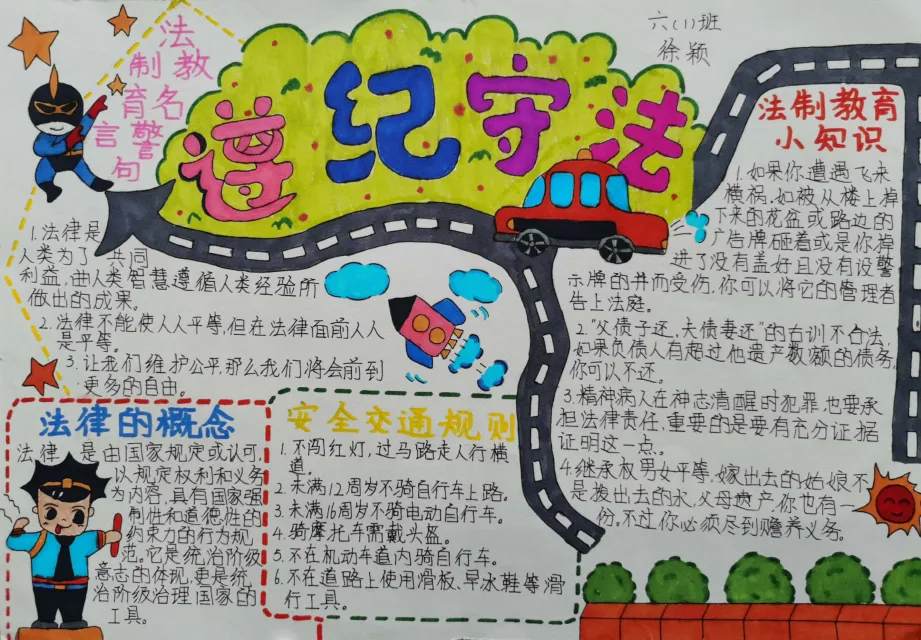 六(1)班
徐颖
遵纪守法
法制教育名言警句
1.法律是
人类为了共同
利益,由人类智慧遵循人类经验所
做出的成果。
2.法律不能使人人平等,但在法律面前人人
是平等。
3.让我们维护公平,那么我们将会前到
更多的自由。
法律的概念
法律,是由国家规定或认可,
以规定权利和义务
为内容,具有国家强
制性和道德性的
约束力的行为规
范。它是统治阶级
意志的体现,更是统
治阶级治理国家的
工具。
安全交通规则
1.不闯红灯,过马路走人行横
道。
2.未满12周岁不骑自行车上路。
3.未满16周岁不骑电动自行车。
4.骑摩托车需戴头盔。
5.不在机动车道内骑自行车。
6.不在道路上使用滑板、旱冰鞋等滑
行工具。
法制教育
小知识
1.如果你遭遇飞来
横祸,如被从楼上掉
下来的花盆或路边的
广告牌砸着或是你掉
进了没有盖好且没有设警
示牌的井而受伤,你可以将它的管理者
告上法庭。
2."父债子还,夫债妻还"的古训不合法,
如果负债人有超过他遗产数额的债务,
你可以不还。
3.精神病人在神志清醒时犯罪,也要承
担法律责任,重要的是要有充分证据
证明这一点。
4.继承权男女平等,嫁出去的姑娘不
是拨出去的水,父母遗产,你也有一
份。不过你必须尽到赡养义务。